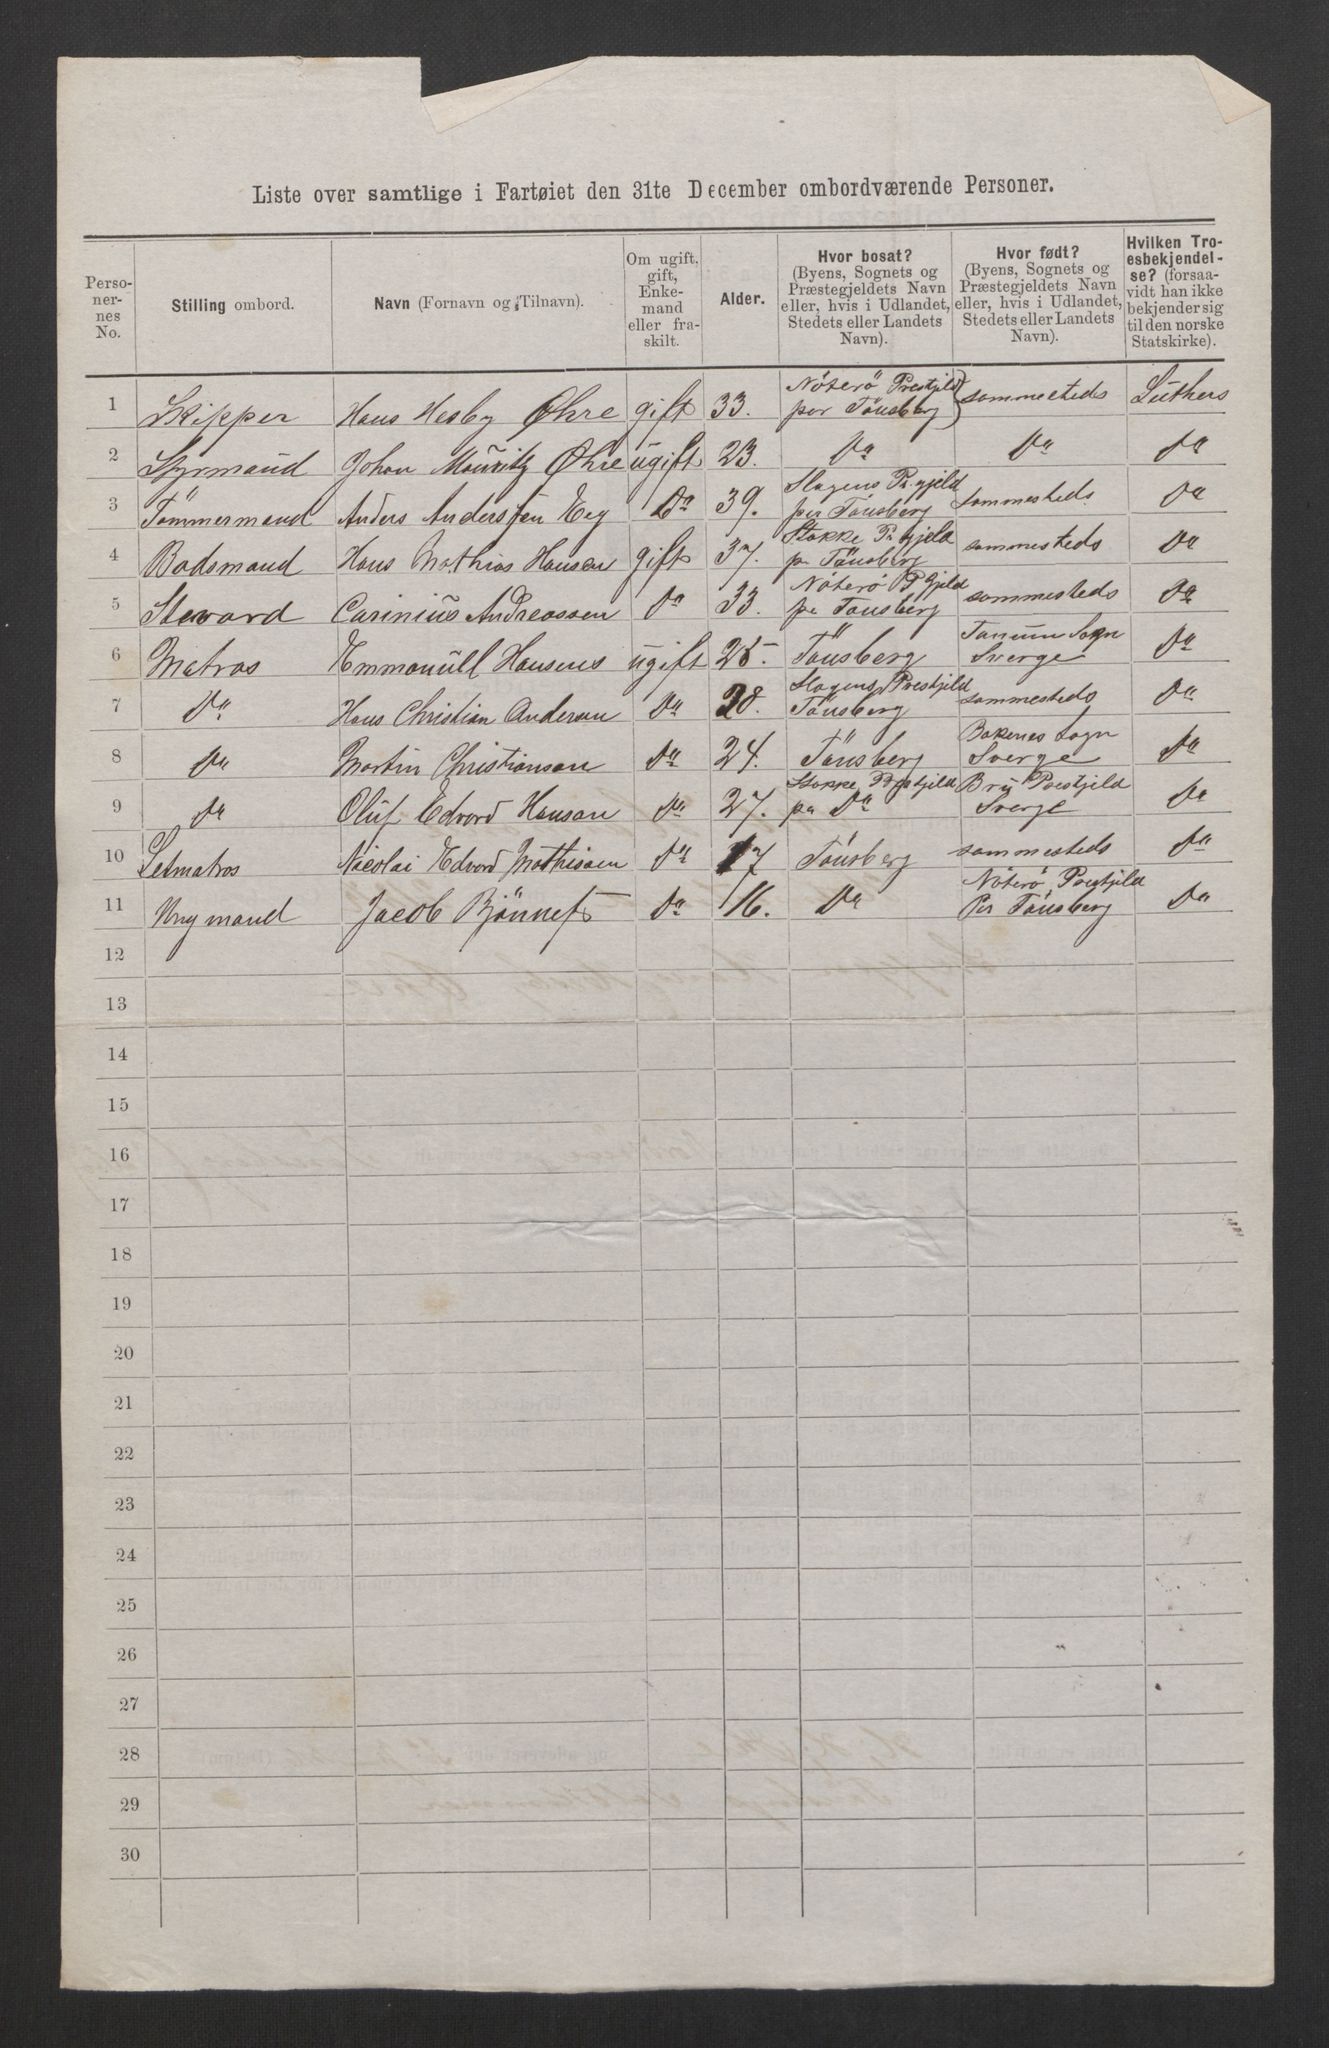 Liste over samtlige i Fartøiet den 31te December ombordværende Personer.
Perso-
ner-
nes
No.
Stilling ombord.
Navn (Fornavn og Tilnavn).
Om ugift,
gift,
Enke-
mand
eller fra-
skilt.
Alder.
Hvor bosat?
(Byens, Sognets og
Præstegjeldets Navn
eller, hvis i Udlandet,
Stedets eller Landets
Navn).
Hvor født?
(Byens, Sognets og
Præstegjeldets Navn
eller, hvis i Udlandet,
Stedets eller Landets
Navn).
Hvilken Tro-
esbekjendel-
se? (forsaa-
vidt han ikke
bekjender sig
til den norske
Statskirke).
1 Skipper Hans Hesby Øhre gift 33. Nöterö Prestjeld per Tönsberg sammesteds Luthers
2 Styrmand Johan Mouritz Øhre ugift 23. Do Do Do
3 Tömmermand Anders Anderssen Eeg Do 39. Slagens Pr.gjeld per Tönsberg sammesteds Do
4 Badsmand Hans Mathias Hansen gift 37. Stokke Pr gjeld pr Tönsberg sammesteds Do
5 Steward Carinius Andreassen Do 33. Nöterö P Gjeld pr Tönsberg sammesteds Do
6 Matros Emmanuell Hansens ugift 25. Tönsberg Tanum Sogn Sverge Do
7 Do Hans Christian Andersen Do 28. Slagens Prestjeld Tönsberg sammesteds Do
8 Do Martin Christiansen Do 24. Tönsberg Bakenes Sogn Sverge Do
9 Do Oluf Edvard Hansen Do 27. Stokke Prestjeld pr Do Bru Prestjeld Sverge Do
10 Letmatros Nicolai Edvard Mathisen Do 17 Tönsberg sammesteds Do
11 Ungmand Jacob Bjönnes Do 16. Do Nöterö Prestjeld Per Tönsberg Do
12
13
14
15
16
17
18
19
20
21
22
23
24
25
26
27
28
29
30